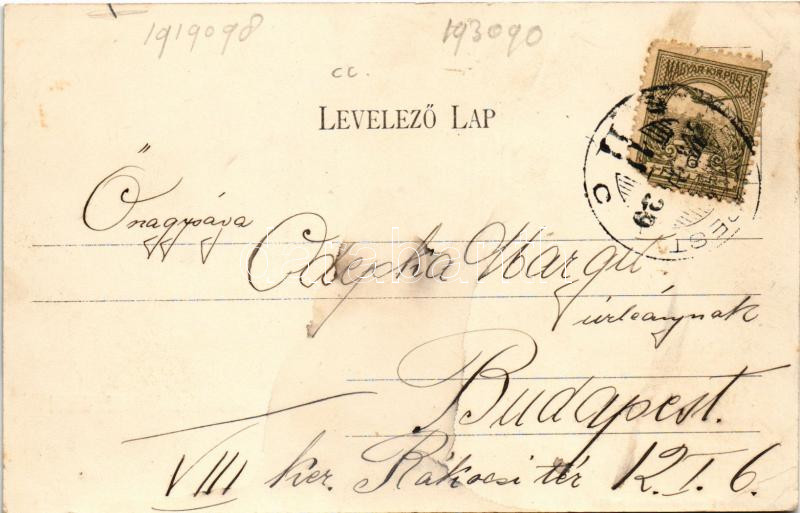 1919098
193090
cc.
LEVELEZŐ LAP
MAGYAR KIR. POSTA
Őnagysága
Margit
úrleánynak
Budapest.
VIII ker. Rákócsi tér 12. I. 6.
39
C
PEST